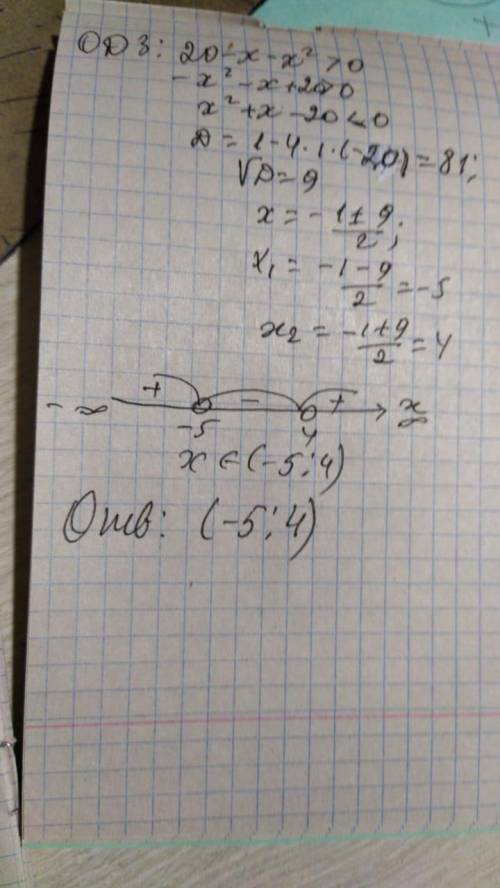 ОДЗ: 20 - x - x² > 0
-x² - x + 20 > 0
x² + x - 20 < 0
D = 1 - 4 · 1 · (-20) = 81;
√D = 9
x = - 1 ± 9 / 2 ;
x₁ = -1 - 9 / 2 = -5
x₂ = -1 + 9 / 2 = 4
+ - +
- ∞ -5 4 x ∞
x ∈ (-5; 4)
Отв: (-5; 4)